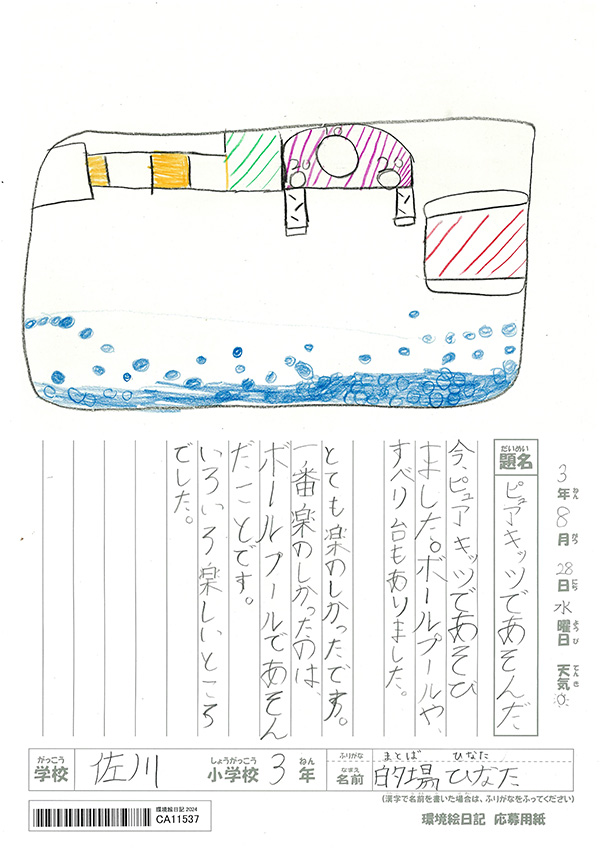 3年8月28日水曜日 天気
ねん がつ にち ようび てんき
だいめい
題名
ピュアキッツであそんだ
今、ピュアキッツであそび
ました。ボールプールや、
すべり台もありました。
とても楽のしかったです。
一番楽のしかったのは、
ボールプールであそん
だことです。
いろいろ楽しいところ
でした。
がっこう しょうがっこう ねん
学校 佐川 小学校 3年
ふりがな まとば ひなた
なまえ
名前 的場ひなた
(漢字で名前を書いた場合は、ふりがなをふってください)
環境絵日記2024
CA11537
環境絵日記 応募用紙